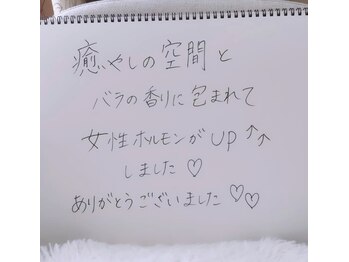 癒やしの空間と
バラの香りに包まれて
女性ホルモンがUP↑↑
しました♡
ありがとうございました♡♡